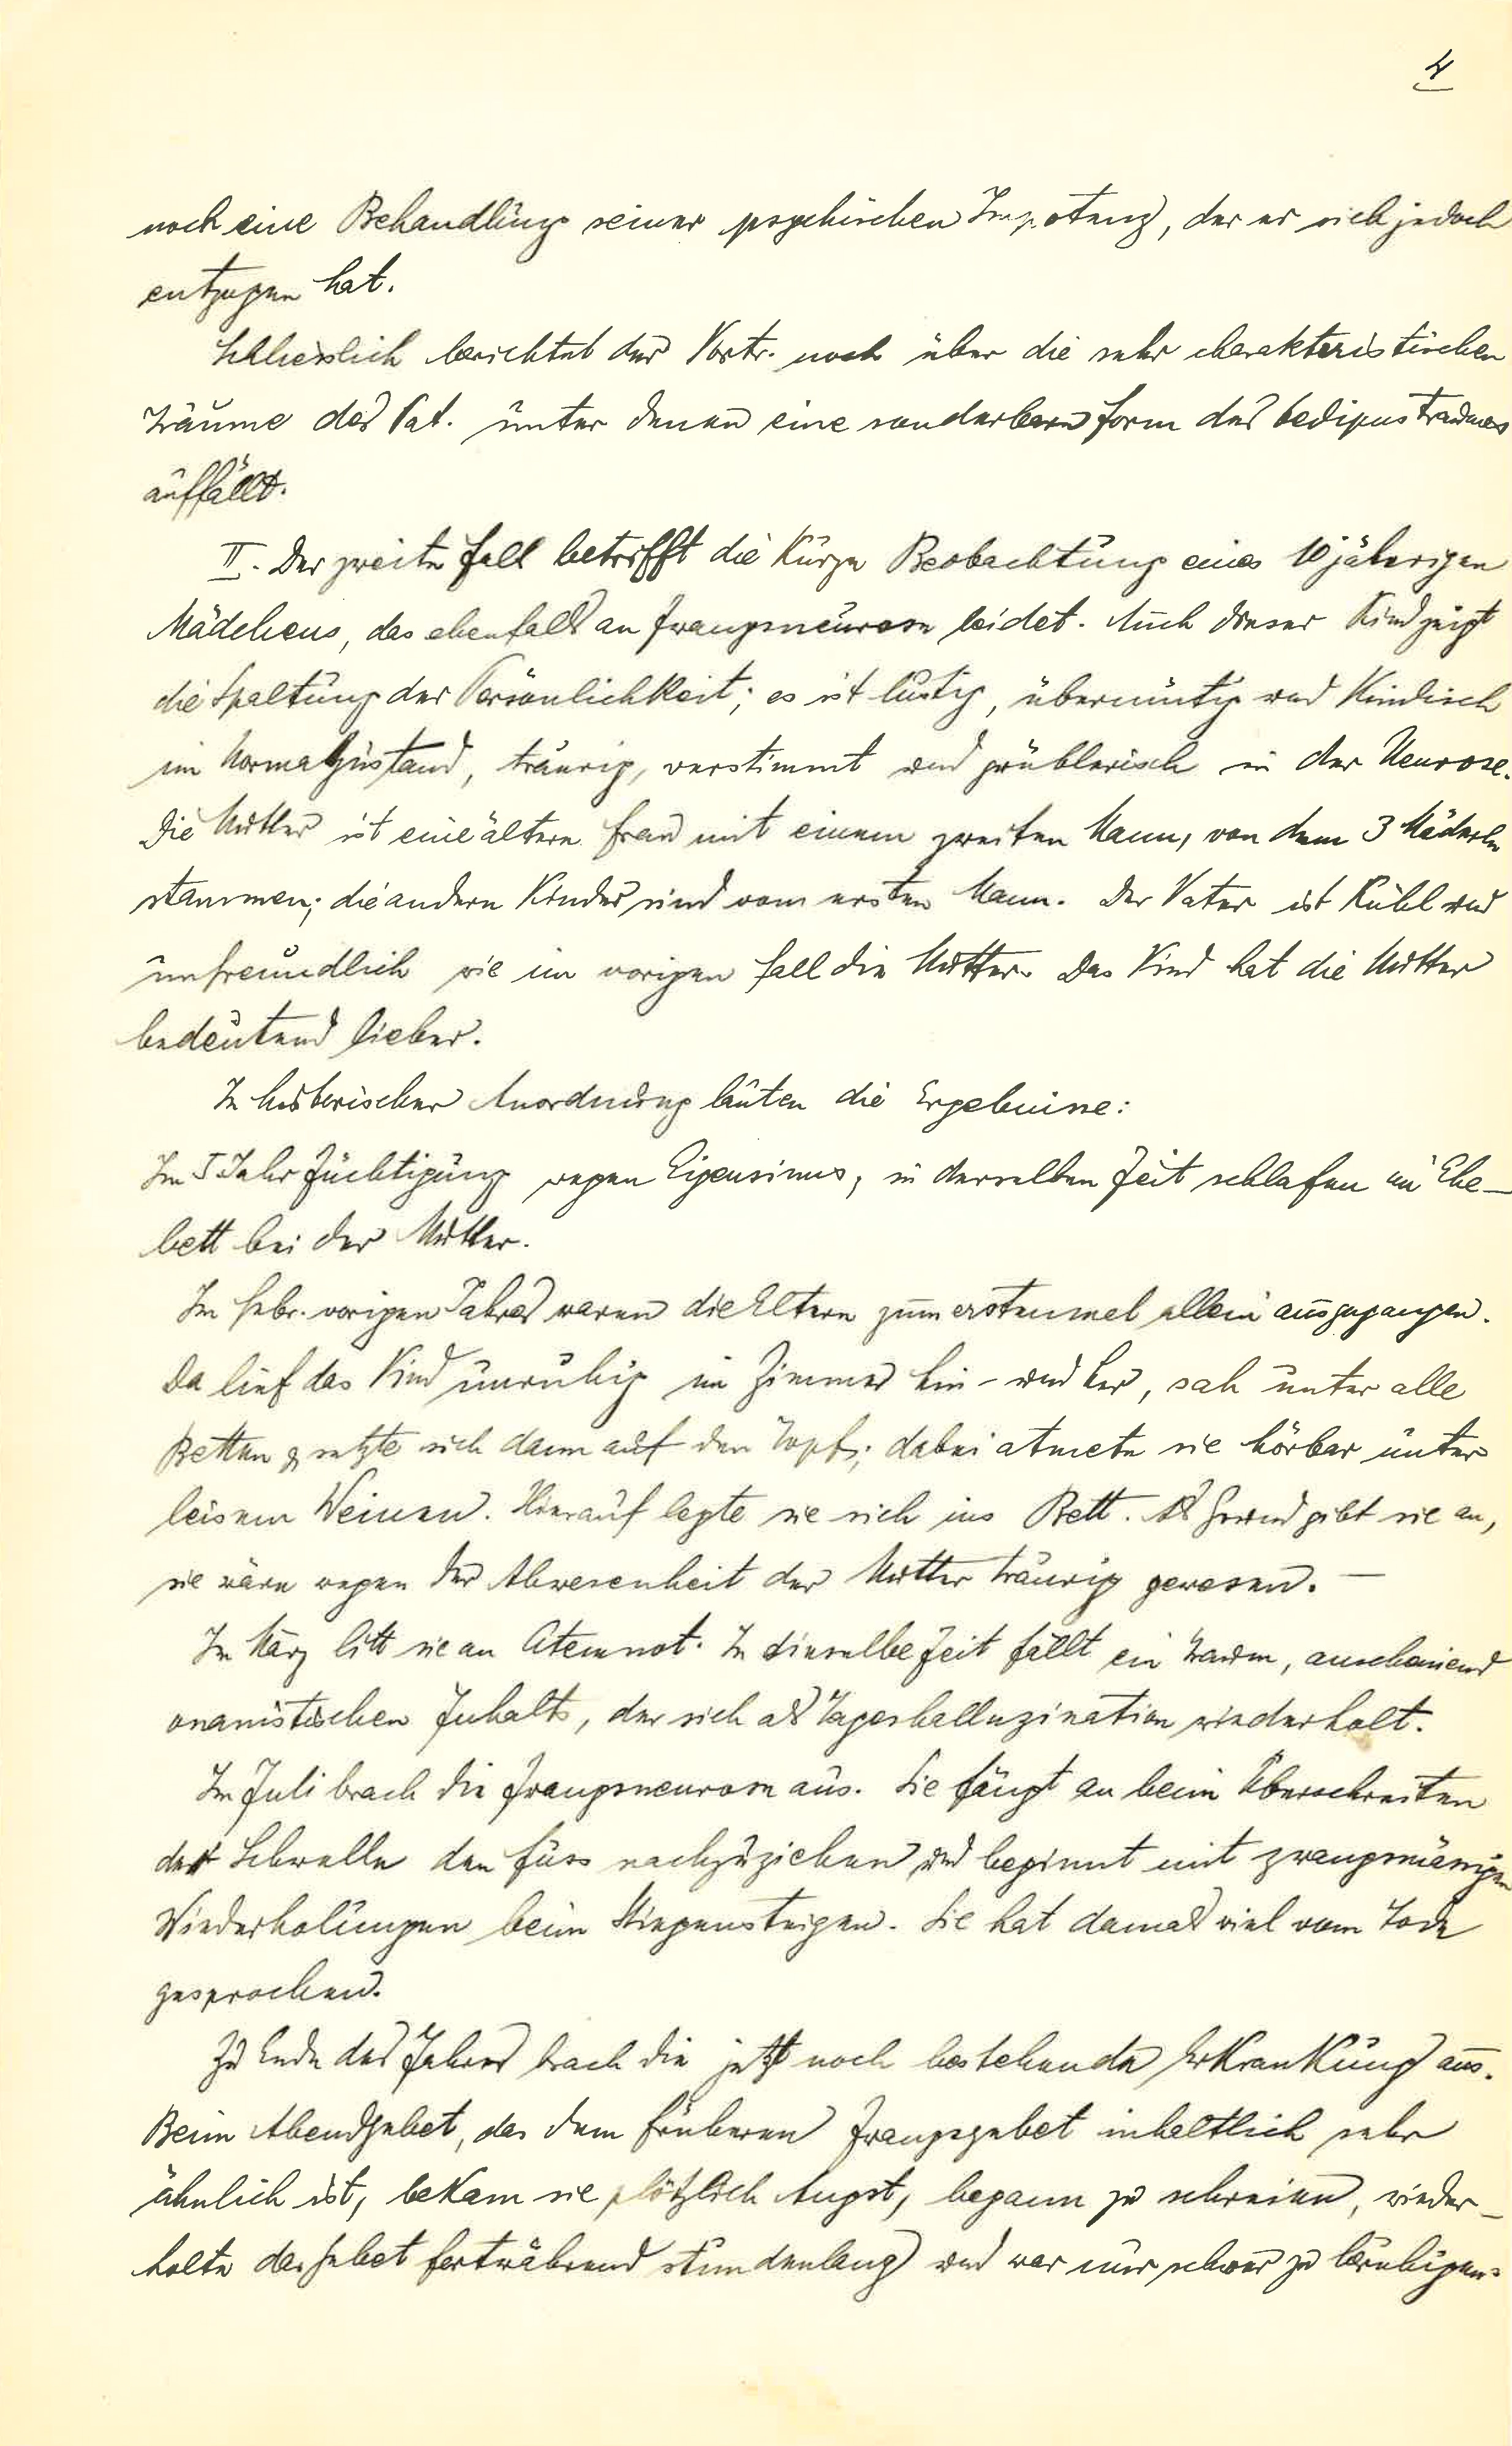 4
noch eine Behandlung seiner psychischen Impotenz, der er sich jedoch
entzogen hat.
Schliesslich berichtet der Vortr. noch über die sehr charakteristischen
Träume des Pat. unter denen eine sonderbare Form des Oedipustraumes
auffällt.
II. Der zweite Fall betrifft die kurze Beobachtung eines 10 jährigen
Mädchens, das ebenfalls an Zwangsneurose leidet. Auch dieses Kind zeigt
die Spaltung der Persönlichkeit; es ist lustig, übermütig und kindisch
im Normalzustand, traurig, verstimmt und grüblerisch in der Neurose.
Die Mutter ist eine ältere Frau mit einem zweiten Mann, von dem 3 Mäderln
stammen; die andern Kinder sind vom ersten Mann. Der Vater ist kühl und
unfreundlich wie im vorigen Fall die Mutter. Das Kind hat die Mutter
bedeutend lieber.
In historischer Anordnung lauten die Ergebnisse:
Im 5 Jahr Züchtigung wegen Eigensinns, in derselben Zeit schlafen im Ehe-
bett bei der Mutter.
Im Febr. vorigen Jahres waren die Eltern zum erstenmal allein ausgegangen.
Da lief das Kind unruhig im Zimmer hin- und her, sah unter alle
Betten & setzte sich dann auf den Topf; dabei atmete sie hörbar unter
leisem Weinen. Hierauf legte sie sich ins Bett. Als Grund gibt sie an,
sie wäre wegen der Abwesenheit der Mutter traurig gewesen. —
Im März litt sie an Atemnot. In dieselbe Zeit fällt ein Traum, anscheinend
onanistischen Inhalts, der sich als Tageshalluzination wiederholt.
Im Juli brach die Zwangsneurose aus. Sie fängt an beim Überschreiten
der Schwelle den Fuss nachzuziehen und beginnt mit zwangsmässigen
Wiederholungen beim Stiegensteigen. Sie hat damals viel vom Tode
gesprochen.
Zu Ende des Jahres brach die jetzt noch bestehende Erkrankung aus.
Beim Abendgebet, das dem früheren Zwangsgebet inhaltlich sehr
ähnlich ist, bekam sie plötzlich Angst, begann zu schreien, wieder-
holte das Gebet fortwährend stundenlang und war nur schwer zu beruhigen.